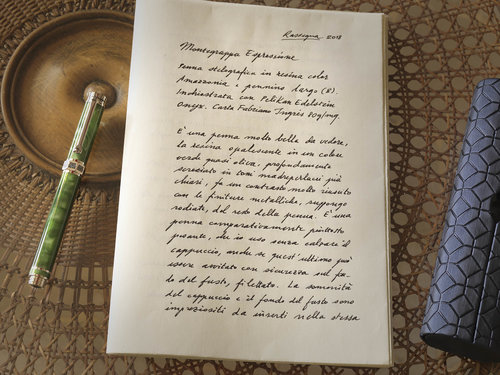 Rassegna 2018
Montegrappa Espressione
Penna stilografica in resina color
Amazzonia e pennino largo (B).
Inchiostrata con Pelikan Edelstein
Onyx. Carta Fabriano Ingres 90g/mq.
È una penna molto bella da vedere,
la resina opalescente in un colore
verde quasi oliva, profondamente
screziato in toni madreperlacei più
chiari, fa un contrasto molto riuscito
con le finiture metalliche, suppongo
rodiate, del resto della penna. È una
penna comparativamente piuttosto
pesante, che io uso senza calzare il
cappuccio, anche se quest'ultimo può
essere avvitato con sicurezza sul fon
do del fusto, filettato. La sommità
del cappuccio e il fondo del fusto sono
impreziositi da inserti nella stessa